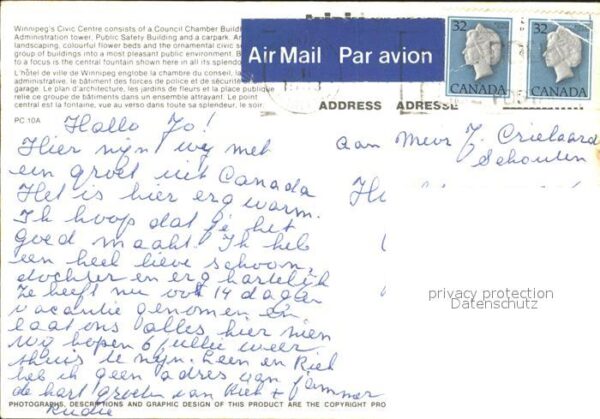 Winnipeg's Civic Centre consists of a Council Chamber Build
Administration tower, Public Safety Building and a carpark. A
landscaping, colourful flower beds and the ornamental civic s
group of buildings into a most pleasant public environment.
to a focus is the central fountain shown here in all its splendo
L'hôtel de ville de Winnipeg englobe la chambre du conseil,
administrative, le bâtiment des forces de police et de sécurité
garage. Le plan d'architecture, les jardins de fleurs et la place publique
relie ce groupe de bâtiments dans un ensemble attrayant. Le point
central est la fontaine, vue au verso dans toute sa splendeur, le soir.
PC 10A
Air Mail Par avion
32
CANADA
32
CANADA
ADDRESS ADRESSE
Hallo Jo!
Hier zijn wij met
een groet uit Canada
Het is hier erg warm.
Ik hoop dat je het
goed maakt. Ik heb
een heel lieve schoon
dochter en erg hartelijk
Ze heeft nu ook 14 dagen
vacantie genomen en
laat ons alles hier zien
wij hopen 6 jullie weer
thuis te zijn. Leen en Riek
heb ik geen adres van jammer
de hart groeten van Riek +
Rudie
aan Mevr J. Crielaard
Schouten
privacy protection
Datenschutz
PHOTOGRAPHS, DESCRIPTIONS AND GRAPHIC DESIGN OF THIS PRODUCT ARE THE COPYRIGHT PRO